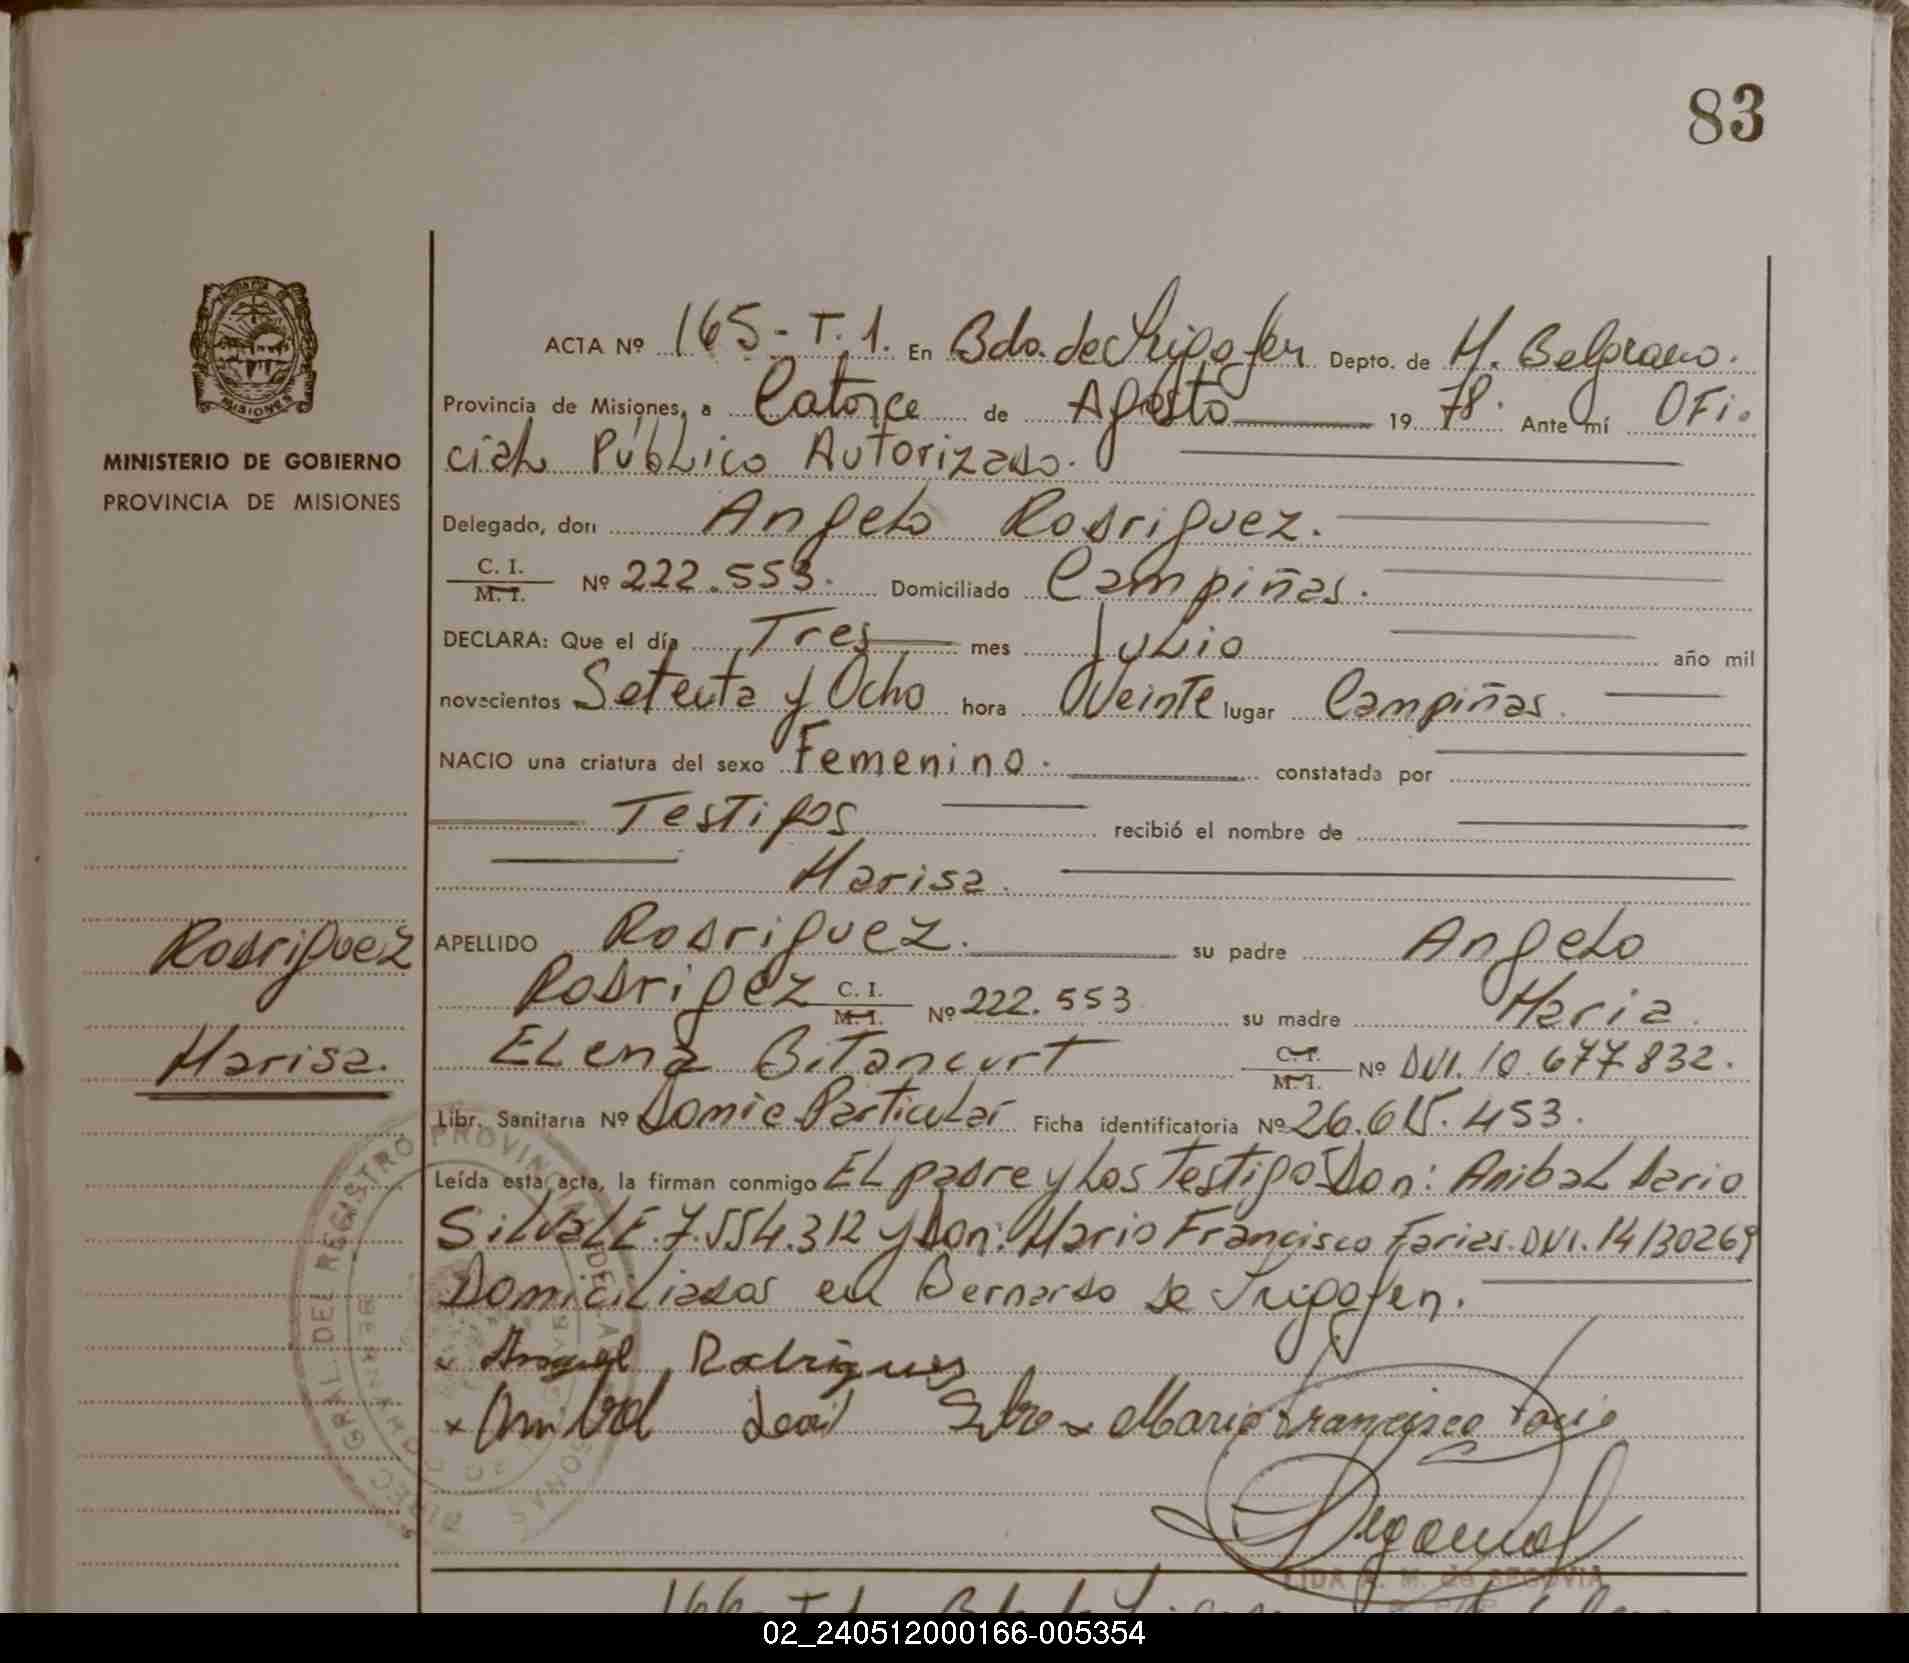 83
MINISTERIO DE GOBIERNO
PROVINCIA DE MISIONES
ACTA Nº 165-T.1. En Bdo. de Irigoyen Depto. de M. Belgrano.
Provincia de Misiones, a Catorce de Agosto 19 78. Ante mí OFi-
cial Público Autorizado.
Delegado, don Angelo Rodriguez.
C. I.
M. I. Nº 222.553. Domiciliado Campiñas.
DECLARA: Que el día Tres mes Julio año mil
novecientos Setenta y Ocho hora Veinte lugar Campiñas.
NACIO una criatura del sexo Femenino. constatada por
Testigos recibió el nombre de
Marisa.
Rodriguez APELLIDO Rodriguez. su padre Angelo
Rodrigez C. I. M. I. Nº 222.553 su madre Maria
Marisa. Elena Bitancurt C. I. M. I. Nº DNI. 10.677.832.
Libr. Sanitaria Nº Domic Particular Ficha identificatoria Nº 26.615.453.
Leída esta acta, la firman conmigo El padre y los Testigos Don: Anibal Dario
Silva LE. 7.554.312 y Don: Mario Francisco Farias. DNI. 14130269
Domiciliados en Bernardo de Irigoyen.
Rodrigues
x Anibal x Mario Francisco
DIREC. GRAL. DEL REGISTRO PROVINCIAL DE LAS PERSONAS
LIDA A. M. de SEGOVIA
166-T.1.
02_240512000166-005354